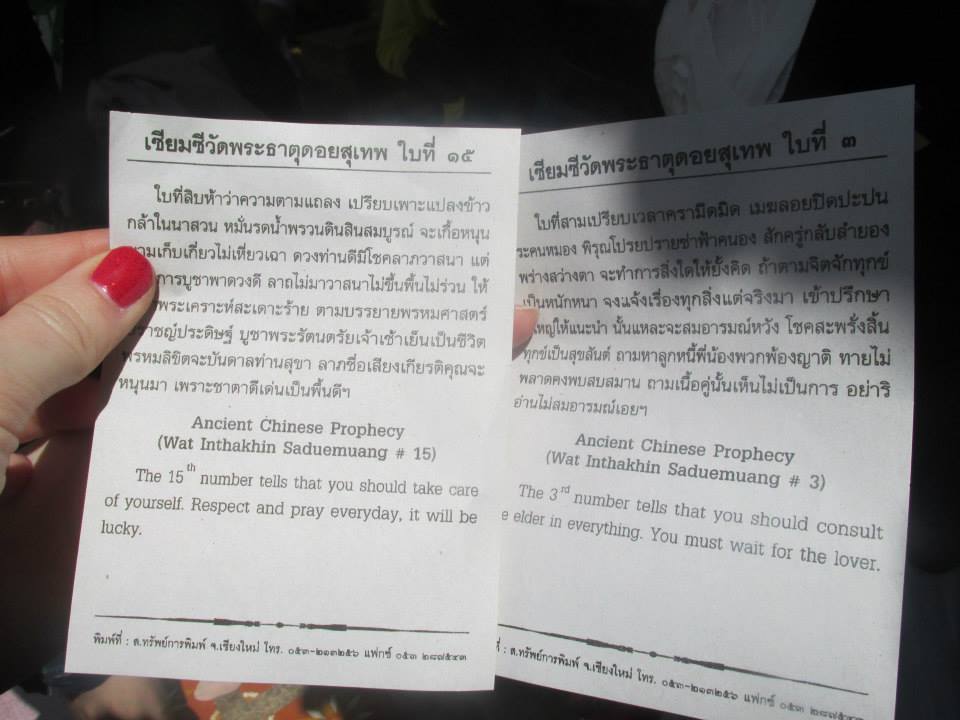 เซียมซีวัดพระธาตุดอยสุเทพ ใบที่ ๑๕
ใบที่สิบห้าว่าความตามแถลง เปรียบเพาะแปลงข้าว
กล้าในนาสวน หมั่นรดน้ำพรวนดินสินสมบูรณ์ จะเกื้อหนุน
ตามเก็บเกี่ยวไม่เหี่ยวเฉา ดวงท่านดีมีโชคลาภวาสนา แต่
การบูชาพาดวงดี ลาถไม่มาวาสนาไม่ขึ้นพื้นไม่ร่วน ให้
พระเคราะห์สะเดาะร้าย ตามบรรยายพรหมศาสตร์
ราชญ์ประดิษฐ์ บูชาพระรัตนตรัยเจ้าเช้าเย็นเป็นชีวิต
พรหมลิขิตจะบันดาลท่านสุขา ลาภชื่อเสียงเกียรติคุณจะ
หนุนมา เพราะชาตาดีเด่นเป็นพื้นดีฯ
Ancient Chinese Prophecy
(Wat Inthakhin Saduemuang # 15)
The 15th number tells that you should take care
of yourself. Respect and pray everyday, it will be
lucky.
พิมพ์ที่ : ด.ทรัพย์การพิมพ์ จ.เชียงใหม่ โทร. ๐๕๓-๒๑๓๒๕๖ แฟกซ์ ๐๕๓ ๒๘๗๕๔๓
เซียมซีวัดพระธาตุดอยสุเทพ ใบที่ ๓
ใบที่สามเปรียบเวลาครามืดมิด เมฆลอยปิดปะปน
ระคนหมอง พิรุณโปรยปรายซ่าฟ้าคนอง สักครู่กลับสำยอง
พร่างสว่างตา จะทำการสิ่งใดให้ยั้งคิด ถ้าตามจิตจักทุกข์
เป็นหนักหนา จงแจ้งเรื่องทุกสิ่งแต่จริงมา เข้าปรึกษา
ใหญ่ให้แนะนำ นั้นแหละจะสมอารมณ์หวัง โชคสะพรั่งสิ้น
ทุกข์เป็นสุขสันต์ ถามหาลูกหนี้พี่น้องพวกพ้องญาติ ทายไม่
พลาดคงพบสบสมาน ถามเนื้อคู่นั้นเห็นไม่เป็นการ อย่าริ
อ่านไม่สมอารมณ์เอยฯ
Ancient Chinese Prophecy
(Wat Inthakhin Saduemuang # 3)
The 3rd number tells that you should consult
e elder in everything. You must wait for the lover.
: ด.ทรัพย์การพิมพ์ จ.เชียงใหม่ โทร. ๐๕๓-๒๑๓๒๕๖ แฟกซ์ ๐๕๓ ๒๘๗๕๔๓